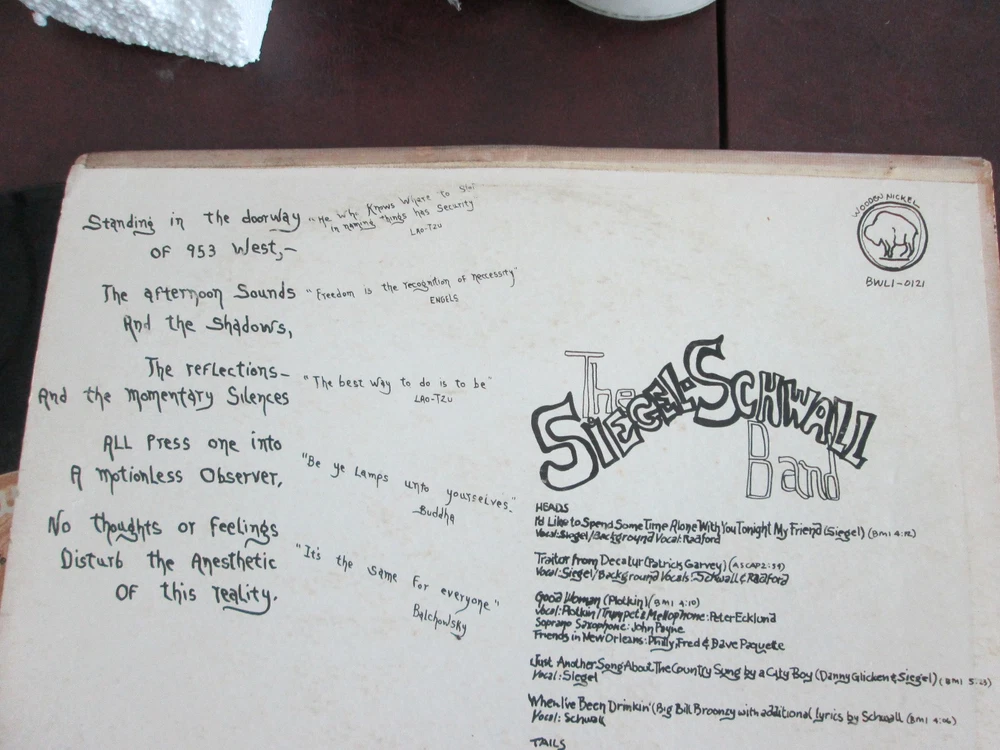 Standing in the doorway
OF 953 West,—
The afternoon Sounds
And the Shadows,
The reflections—
And the Momentary Silences
ALL Press one into
A Motionless Observer,
No thoughts or feelings
Disturb the Anesthetic
OF this reality.
"He Who Knows Where to Stop
in naming things has Security
LAO-TZU
"Freedom is the recognition of neccessity"
ENGELS
"The best way to do is to be"
LAO-TZU
"Be ye Lamps unto yourselves."
Buddha
"It's the same for everyone"
Balchowsky
WOODEN NICKEL
BWL1-0121
The
SIEGEL-SCHWALL
Band
HEADS
I'd Like to Spend Some Time Alone With You Tonight My Friend (Siegel) (BMI 4:12)
Vocal: Siegel/Background Vocal: Radford
Traitor from Decatur (Patrick Garvey) (ASCAP 2:59)
Vocal: Siegel/Background Vocals: Schwall & Radford
Good Woman (Plotkin) (BMI 4:10)
Vocal: Plotkin/Trumpet & Mellophone: Peter Ecklund
Soprano Saxophone: John Payne
Friends in New Orleans: Philly, Fred & Dave Paquette
Just Another Song About The Country Sung by a City Boy (Danny Glicken & Siegel) (BMI 5:23)
Vocal: Siegel
When I've Been Drinkin' (Big Bill Broonzy with additional Lyrics by Schwall (BMI 4:06)
Vocal: Schwall
TAILS